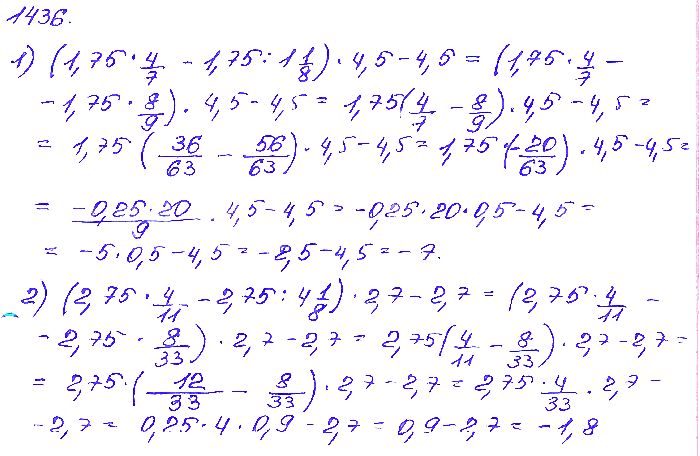 1436.
1) (1,75 · 4/7 - 1,75 : 1 1/8) · 4,5 - 4,5 = (1,75 · 4/7 -
- 1,75 · 8/9) · 4,5 - 4,5 = 1,75(4/7 - 8/9) · 4,5 - 4,5 =
= 1,75 (36/63 - 56/63) · 4,5 - 4,5 = 1,75 · (-20/63) · 4,5 - 4,5 =
= -0,25·20/9 · 4,5 - 4,5 = -0,25 · 20 · 0,5 - 4,5 =
= -5 · 0,5 - 4,5 = -2,5 - 4,5 = -7.
2) (2,75 · 4/11 - 2,75 : 4 1/8) · 2,7 - 2,7 = (2,75 · 4/11 -
- 2,75 · 8/33) · 2,7 - 2,7 = 2,75(4/11 - 8/33) · 2,7 - 2,7 =
= 2,75 · (12/33 - 8/33) · 2,7 - 2,7 = 2,75 · 4/33 · 2,7 -
- 2,7 = 0,25 · 4 · 0,9 - 2,7 = 0,9 - 2,7 = -1,8